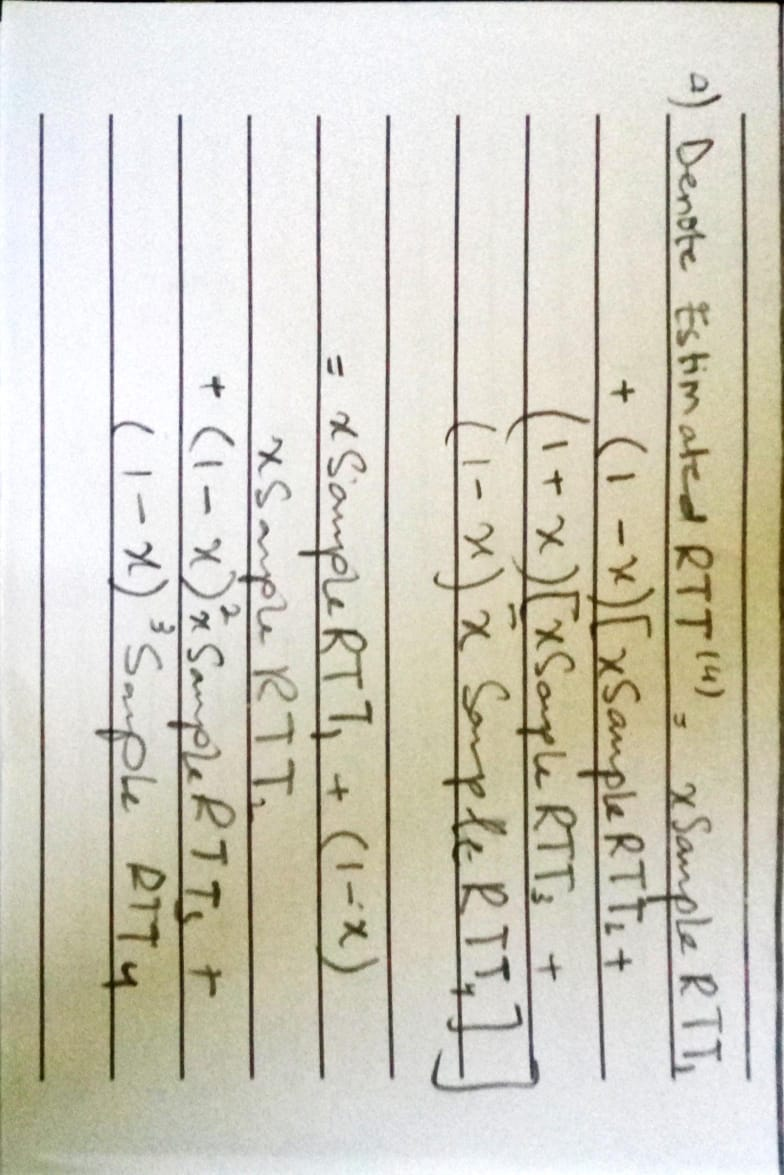 a) Denote Estimated RTT⁽⁴⁾ = x Sample RTT₁
+ (1 - x)[x Sample RTT₂ +
(1 + x)[x Sample RTT₃ +
(1 - x) x Sample RTT₄]]
= x Sample RTT₁ + (1 - x)
x Sample RTT₂
+ (1 - x)² x Sample RTT₃ +
(1 - x)³ Sample RTT₄